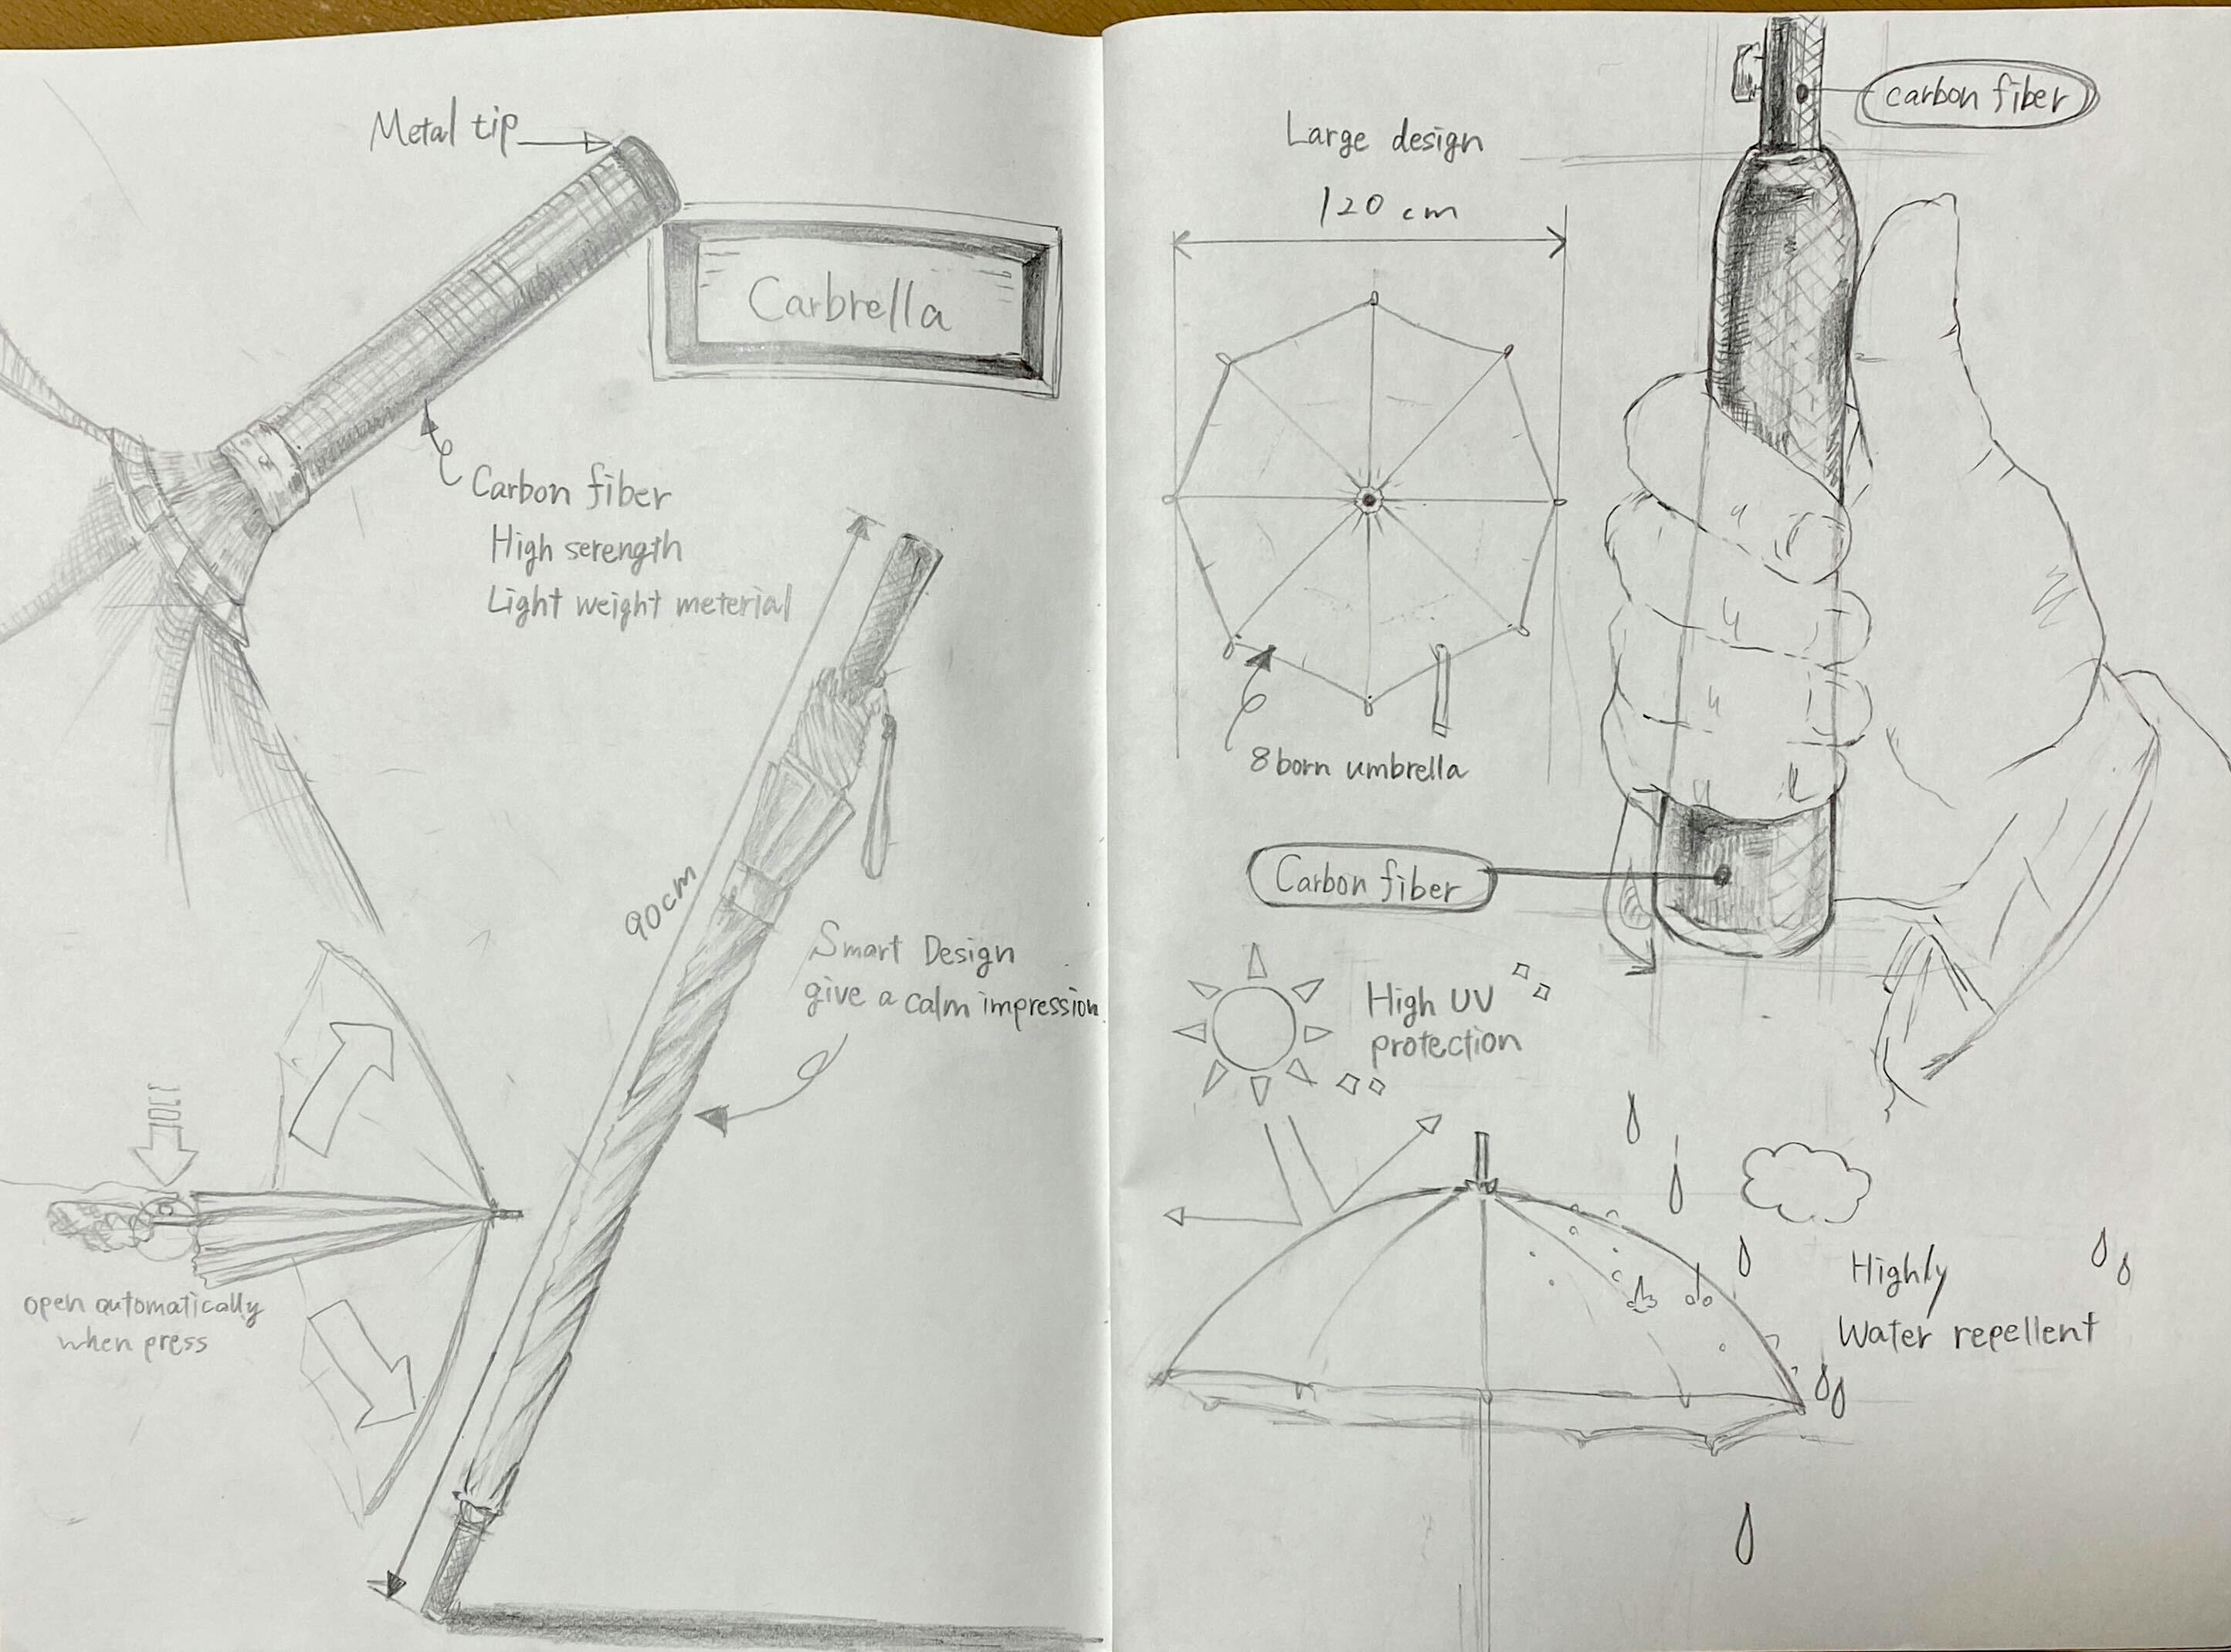 Metal tip
Carbrella
Carbon fiber
High serength
Light weight meterial
90cm
Smart Design
give a calm impression
open automatically
when press
Large design
120 cm
8 born umbrella
carbon fiber
Carbon fiber
High UV
protection
Highly
Water repellent